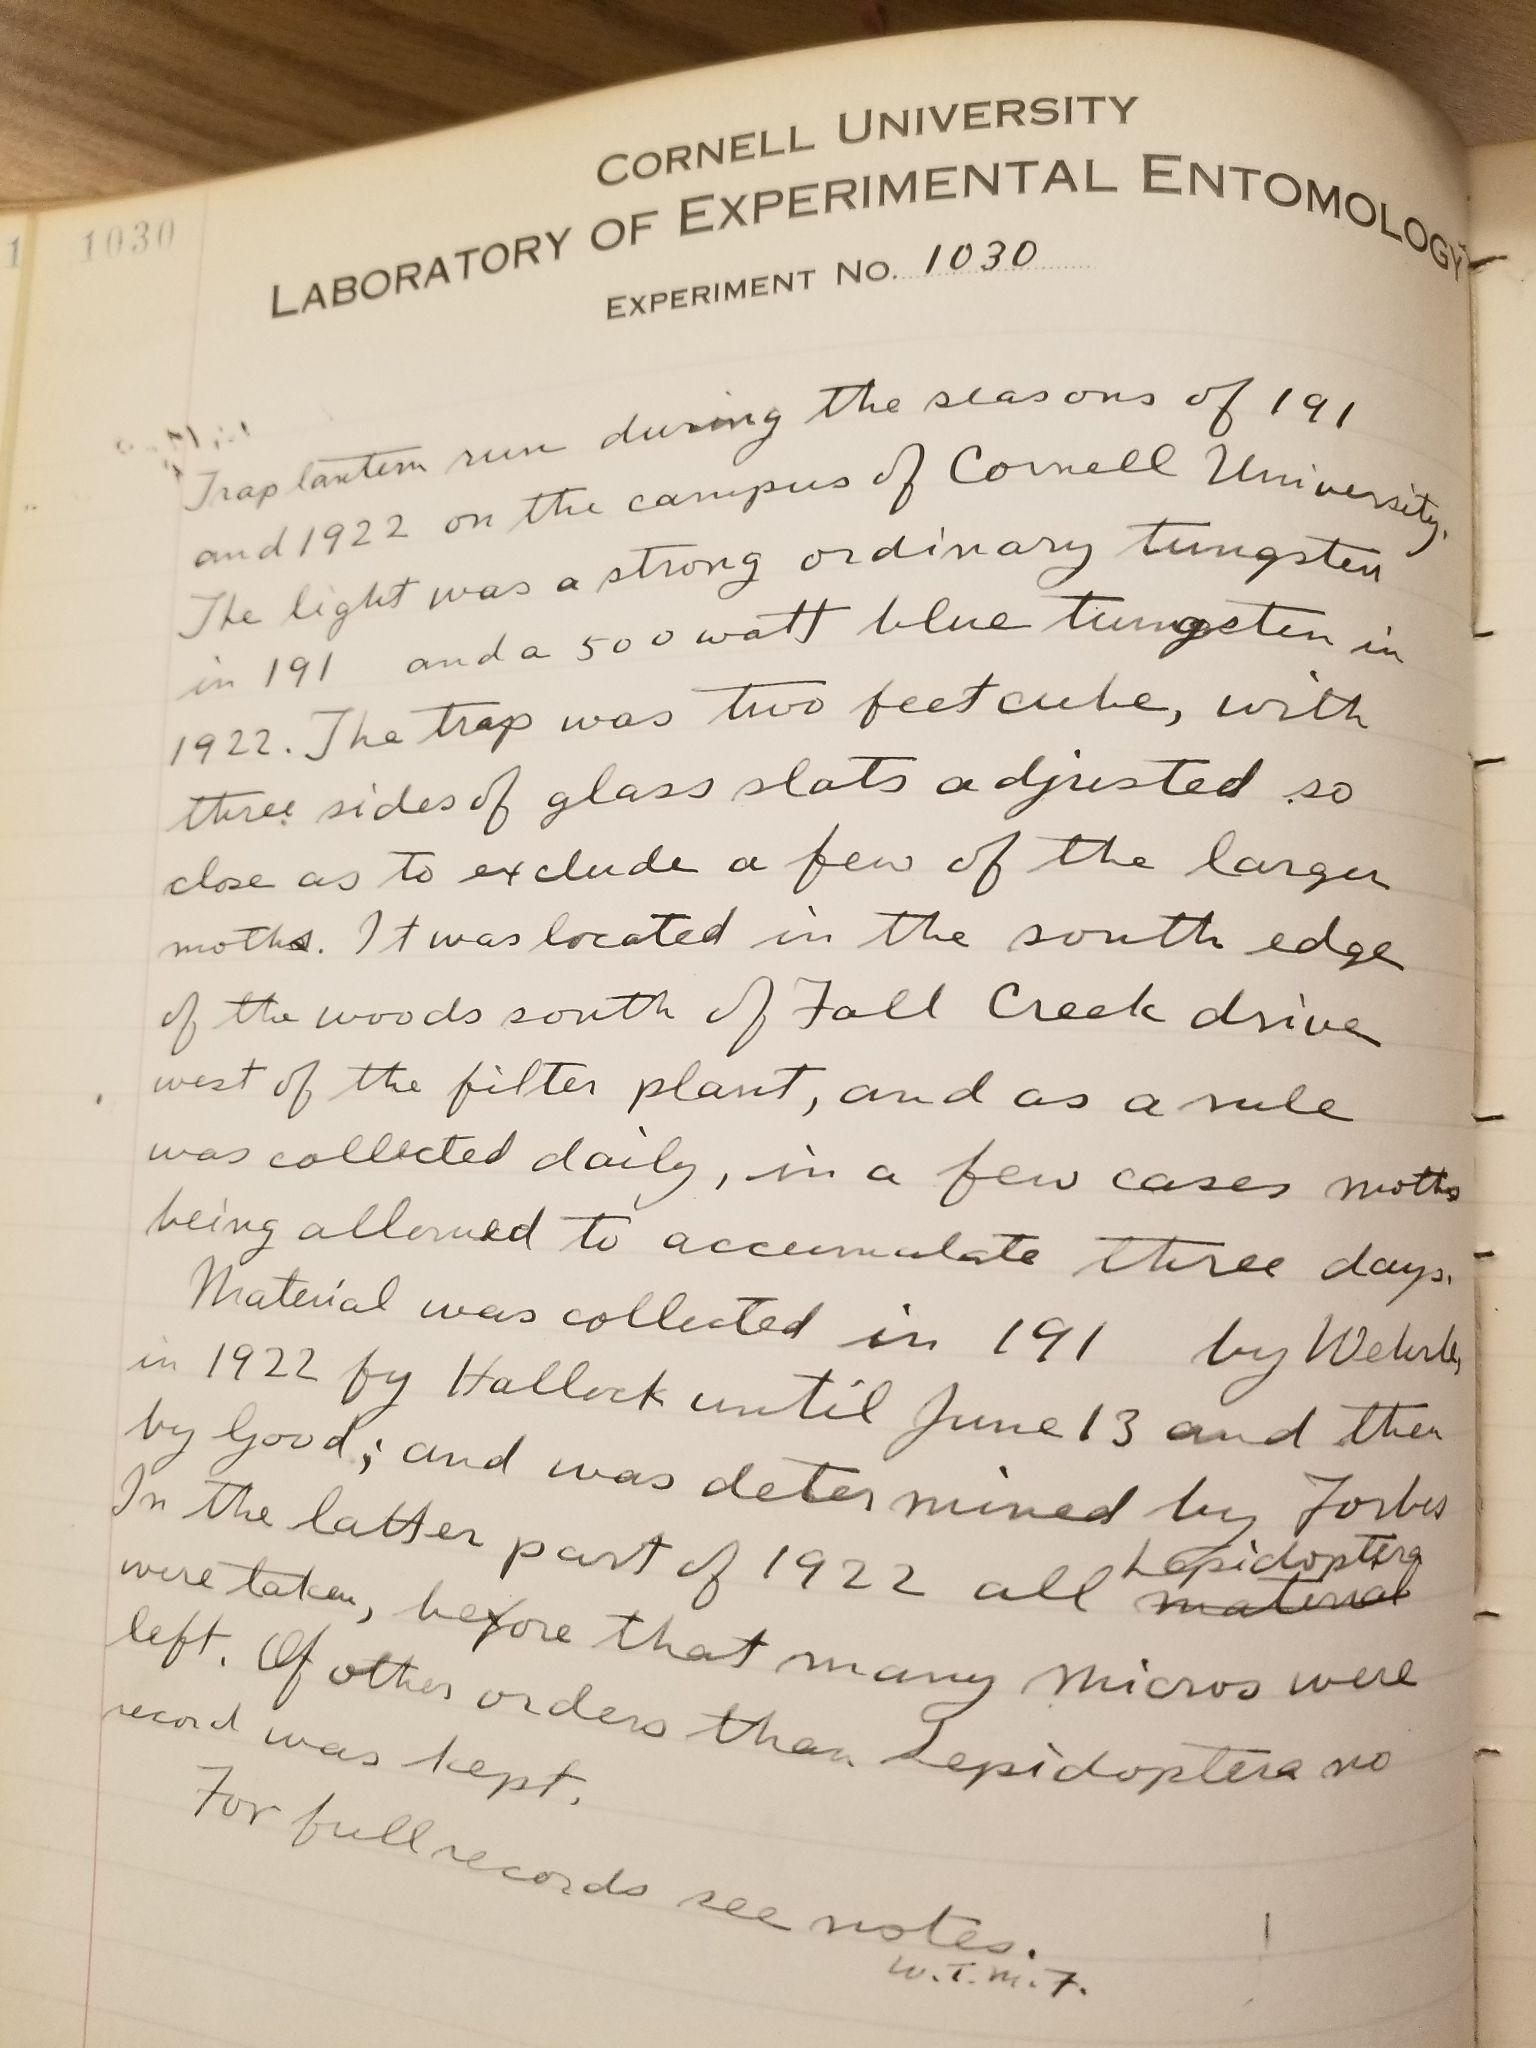 CORNELL UNIVERSITY
LABORATORY OF EXPERIMENTAL ENTOMOLOGY
1 1030
EXPERIMENT NO. 1030
Trap lantern run during the seasons of 191
and 1922 on the campus of Cornell University.
The light was a strong ordinary tungsten
in 191 and a 500 watt blue tungsten in
1922. The trap was two feet cube, with
three sides of glass slats adjusted so
close as to exclude a few of the larger
moths. It was located in the south edge
of the woods south of Fall Creek drive
west of the filter plant, and as a rule
was collected daily, in a few cases moths
being allowed to accumulate three days.
Material was collected in 191 by
in 1922 by Hallock until June 13 and then
by Good; and was determined by Forbes
In the latter part of 1922 all material Lepidoptera
were taken, before that many micros were
left. Of other orders than Lepidoptera no
record was kept.
For full records see notes.
W.T.M.F.